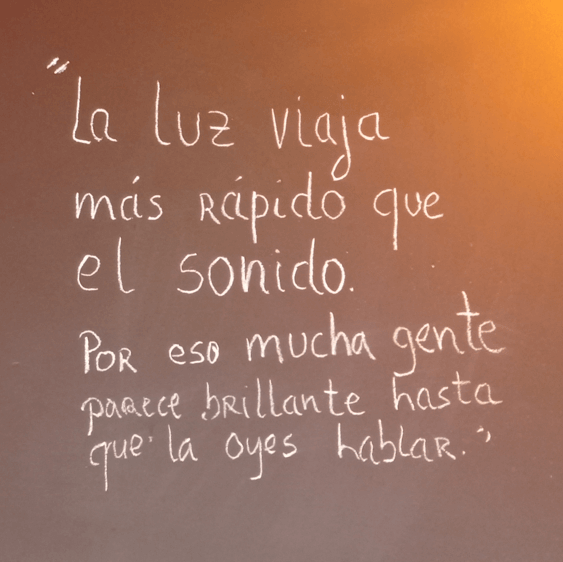 "La luz viaja
más rápido que
el sonido.
Por eso mucha gente
parece brillante hasta
que la oyes hablar."